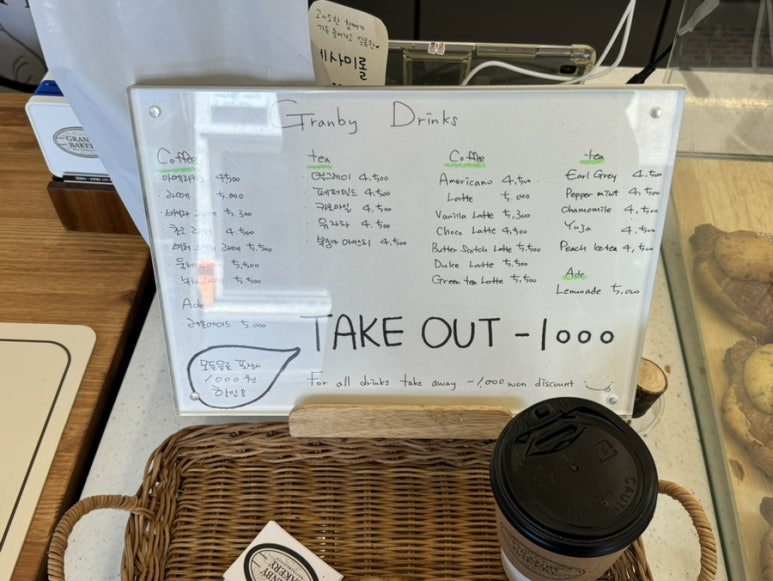 고소한 참깨가
세사미롤
GRANBY
BAKERY
Granby Drinks
Coffee
아메리카노 4,500
라떼 5,000
바닐라 라떼 5,300
초코 라떼 4,500
버터 스카치 라떼 5,500
둘세 라떼 5,500
녹차 라떼 5,500
Ade
레몬에이드 5,000
tea
얼그레이 4,500
페퍼민트 4,500
카모마일 4,500
유자차 4,500
복숭아 아이스티 4,500
Coffee
Americano 4,500
Latte 5,000
Vanilla Latte 5,300
Choco Latte 4,500
Butter Scotch Latte 5,500
Dulce Latte 5,500
Green tea Latte 5,500
tea
Earl Grey 4,500
Pepper mint 4,500
Chamomile 4,500
Yuja 4,500
Peach Icetea 4,500
Ade
Lemonade 5,000
TAKE OUT -1000
모든음료 포장시
1000원
할인
For all drinks take away -1,000 won discount
GRANBY
BAKERY